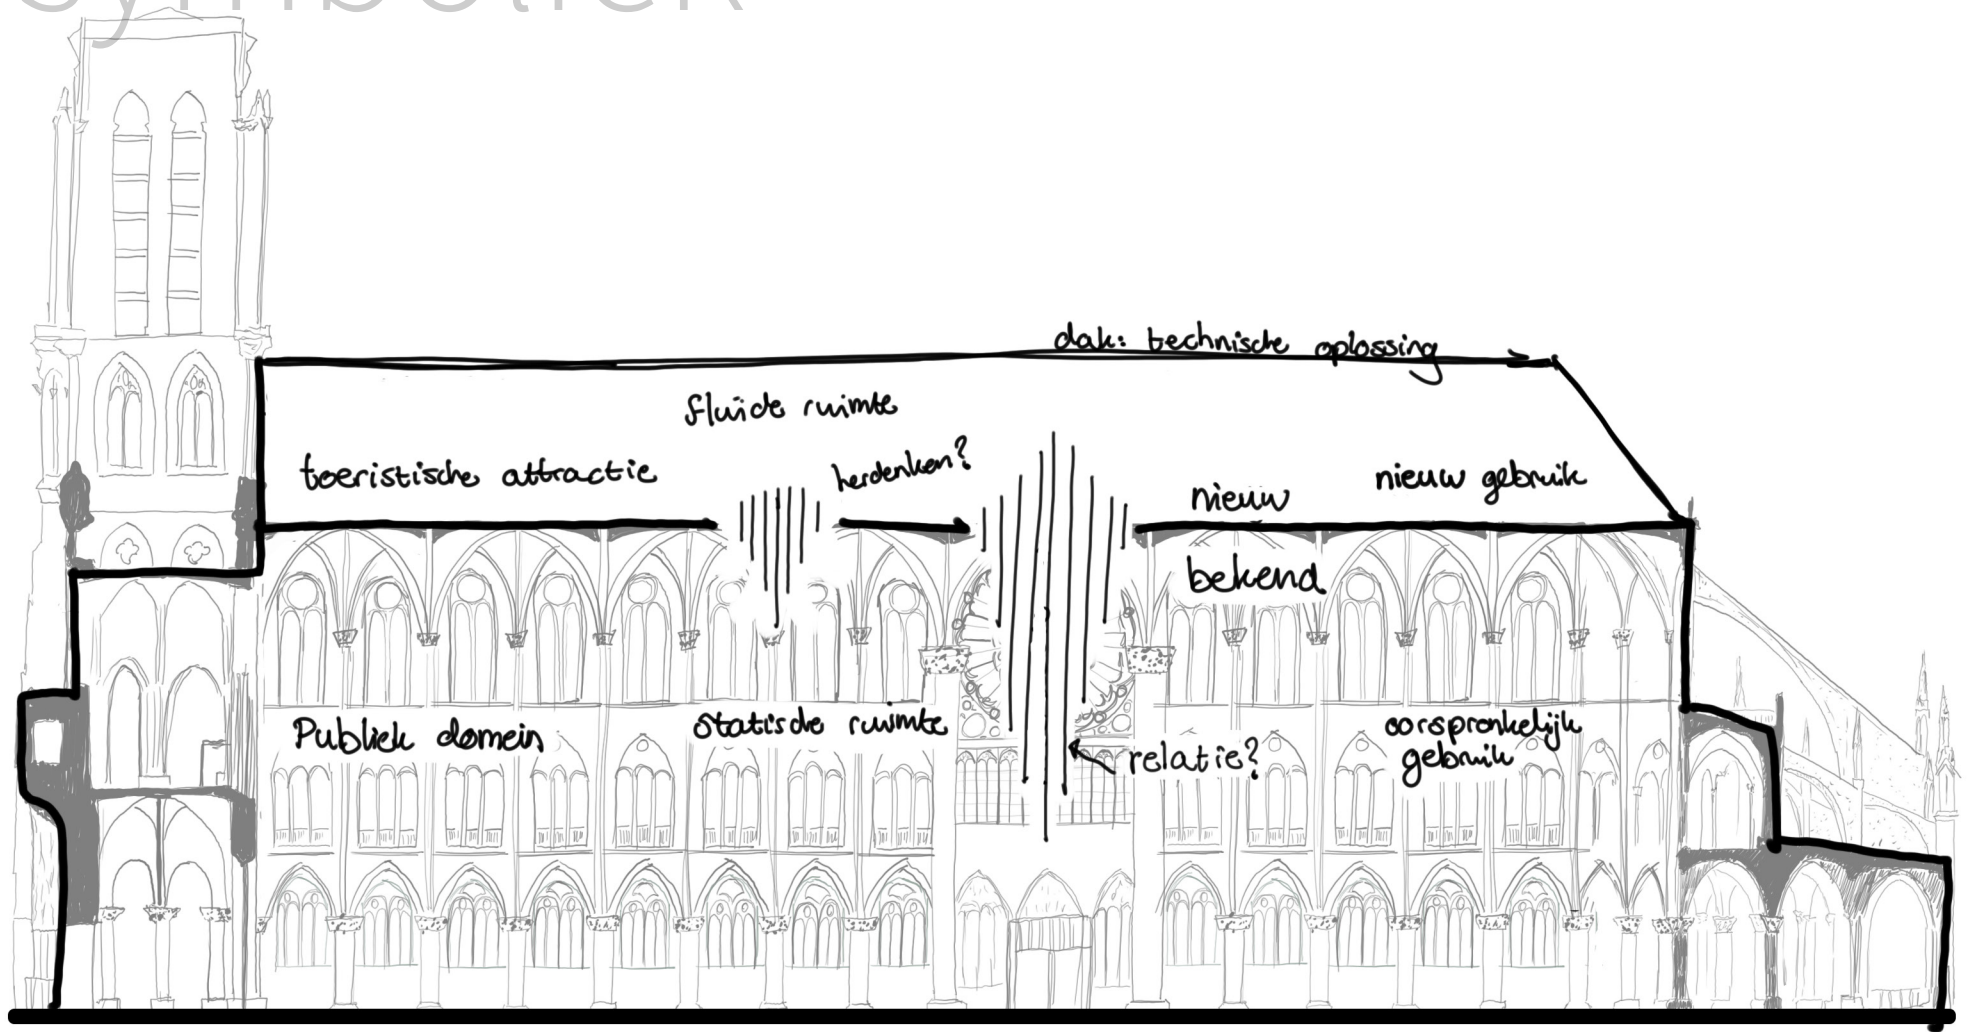 symboliek
dak: technische oplossing
fluïde ruimte
toeristische attractie
herdenken?
nieuw
nieuw gebruik
bekend
Publiek domein
statische ruimte
relatie?
oorspronkelijk
gebruik